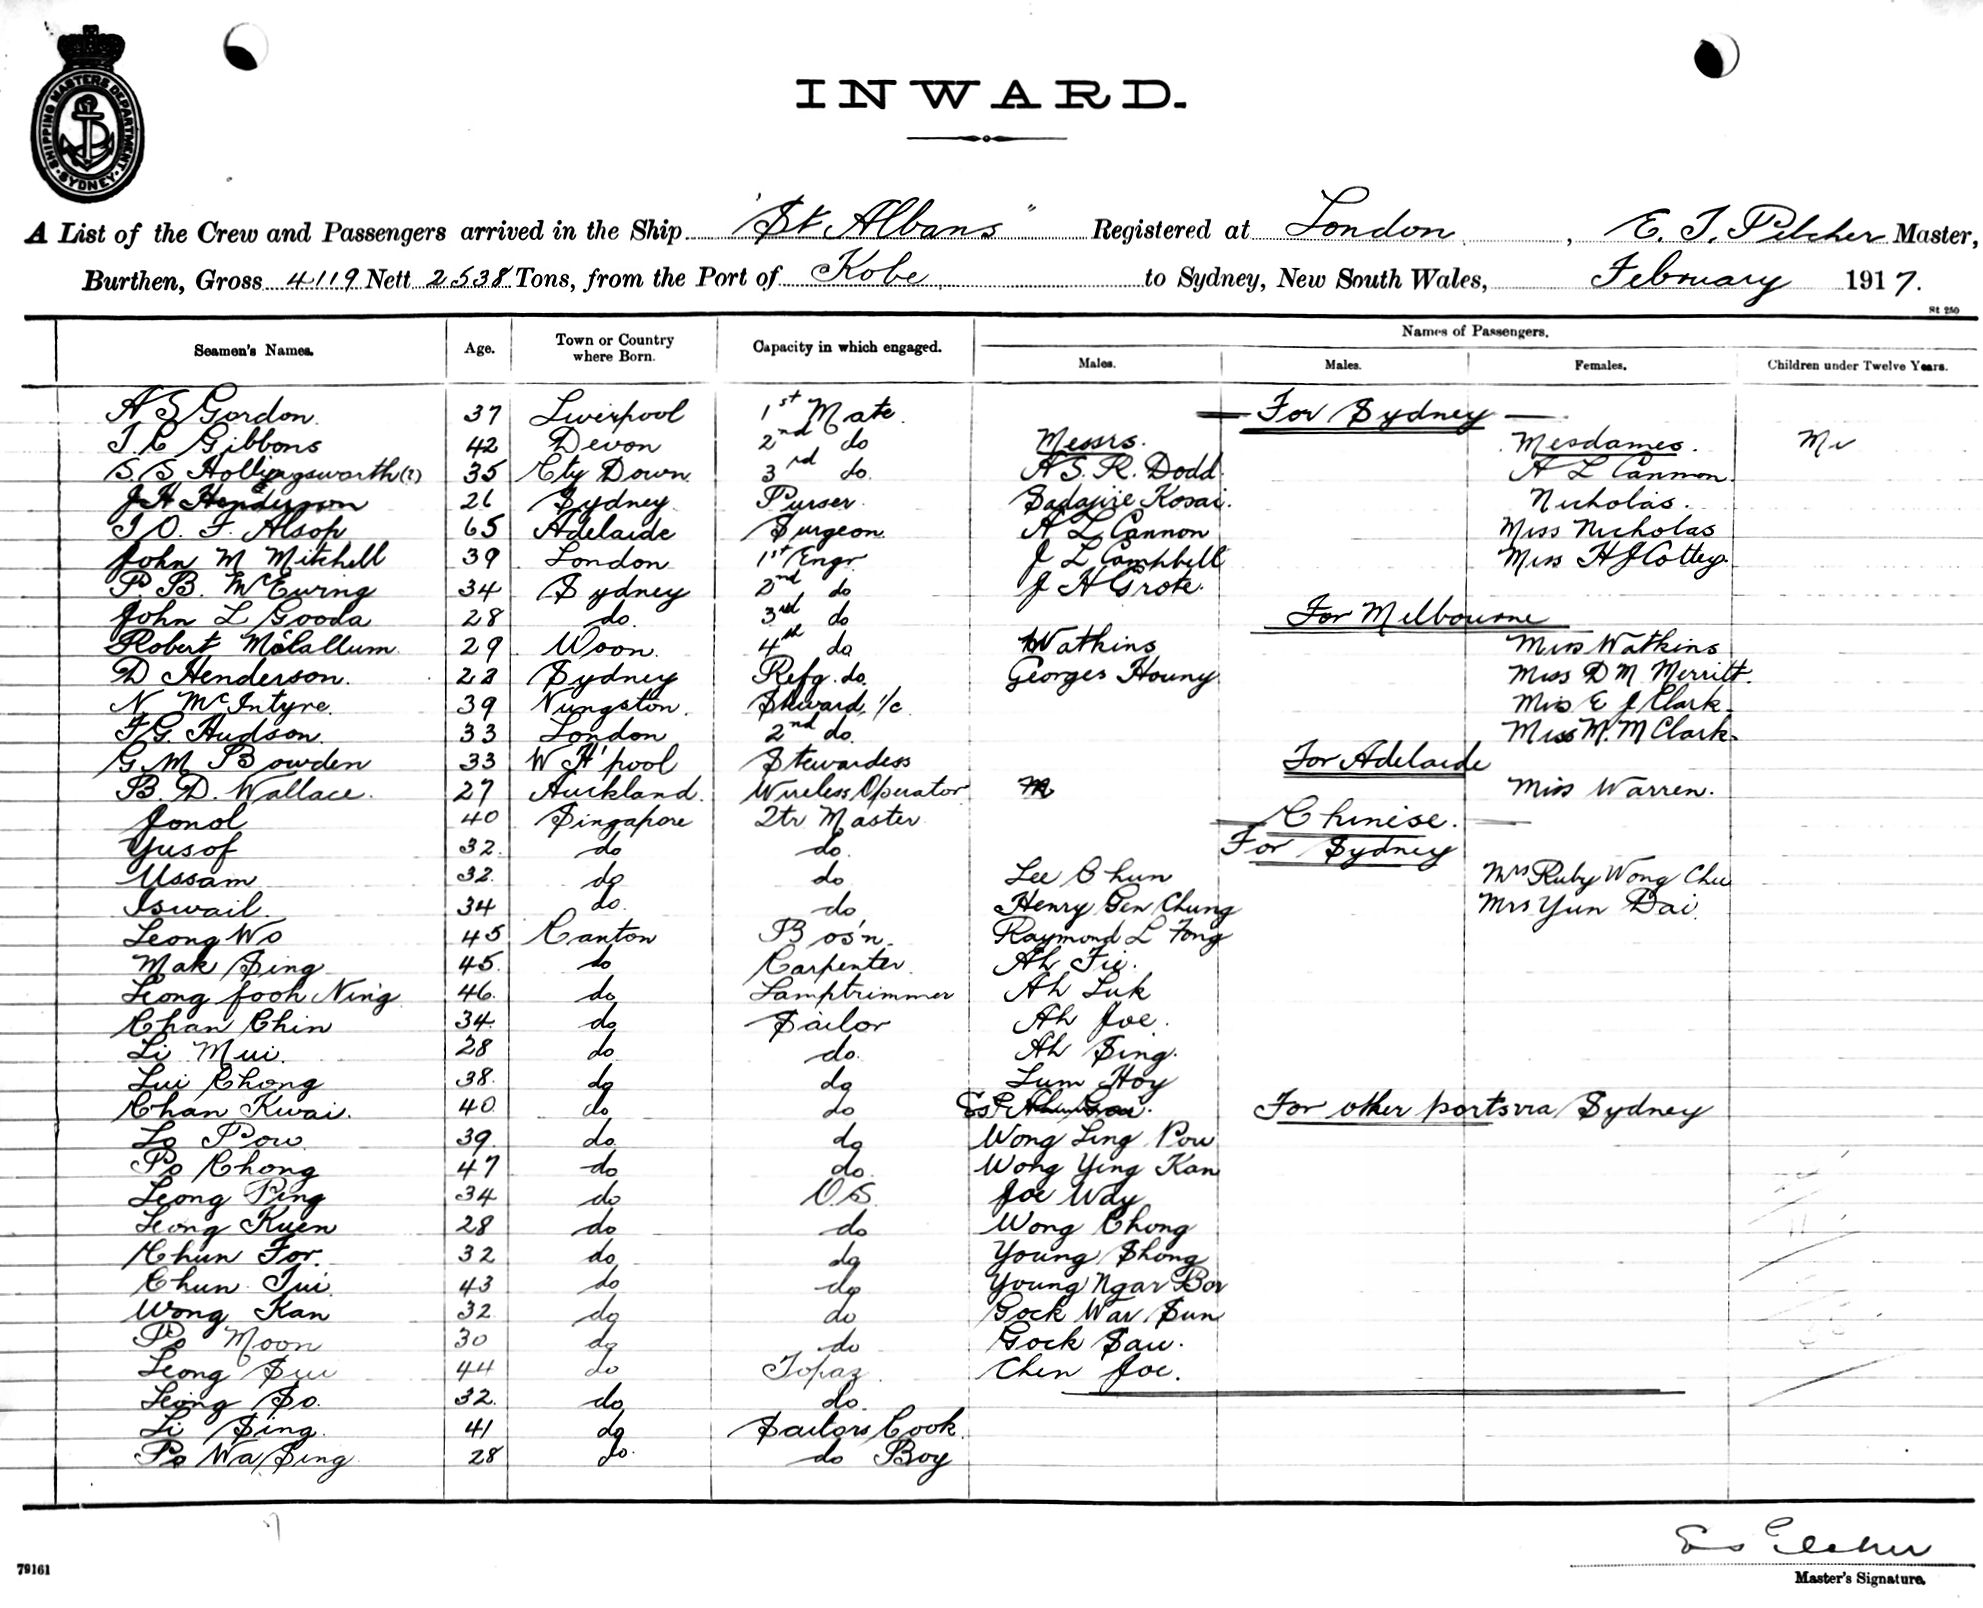 SHIPPING MASTERS DEPARTMENT SYDNEY
INWARD.
A List of the Crew and Passengers arrived in the Ship "St Albans" Registered at London, E. T. Pilcher Master,
Burthen, Gross 4119 Nett 2538 Tons, from the Port of Kobe to Sydney, New South Wales, February 1917.
St 250
Seamen's Names. Age. Town or Country where Born. Capacity in which engaged. Names of Passengers.
Males. Males. Females. Children under Twelve Years.
A S Gordon 37 Liverpool 1st Mate For Sydney
T. C Gibbons 42 Devon 2nd do Messrs. Mesdames.
S S Hollingsworth(?) 35 Cty Down 3rd do. A S. R. Dodd A L Cannon
J H Henderson 26 Sydney Purser. Kosai. Nicholas.
T O. F. Alsop 65 Adelaide Surgeon A L Cannon Miss Nicholas
John M Mitchell 39 London 1st Engr J L Campbell Miss H J Cottey
P. B. McEwing 34 Sydney 2nd do J H Grote
John L Gooda 28 do. 3rd do For Melbourne
Robert McCallum 29 Woon 4th do Watkins Miss Watkins
D Henderson. 23 Sydney Refg. do. Georges Houny Miss D M Merritt.
N McIntyre. 39 Steward i/c Miss E J Clark.
F G Hudson. 33 London 2nd do. Miss M. M Clark.
G M Bowden 33 W H'pool Stewardess For Adelaide
B. D. Wallace. 27 Auckland. Wireless Operator M Miss Warren.
Jonol 40 Singapore 2tr Master Chinese.
Yusof 32. do do. For Sydney
Ussam 32. do do Lee Chun Mrs Ruby Wong Chu
Iswail. 34 do. do Henry Gen Chung Mrs Yun Dai.
Leong Wo 45 Canton Bos'n. Raymond L Fong
Mak Sing 45. do Carpenter. Ah Fie.
Leong fooh Ning 46. do Lamptrimmer Ah Luk
Chan Chin 34. do Sailor Ah Joe.
Li Mui. 28 do do. Ah Sing.
Lui Chong 38. do do Lum Hoy
Chan Kwai. 40. do do For other ports via Sydney
Lo Pow 39. do do Wong Ling Pow
Po Chong 47 do do. Wong Ying Kan
Leong Ping 34 do O S. Joe Way
Leong Kuen 28 do do Wong Chong
Chun For. 32 do do Young Shong
Chun Tui 43 do do Young Ngar Bor
Wong Kan 32 do do Gock War Sun
Po Moon 30 do do Gock Saw.
Leong Sui 44 do Topaz Chen Joe.
Leong So. 32. do do.
Li Sing. 41 do Sailors Cook.
Po Wa Sing 28 do. do Boy
79161
Master's Signature.